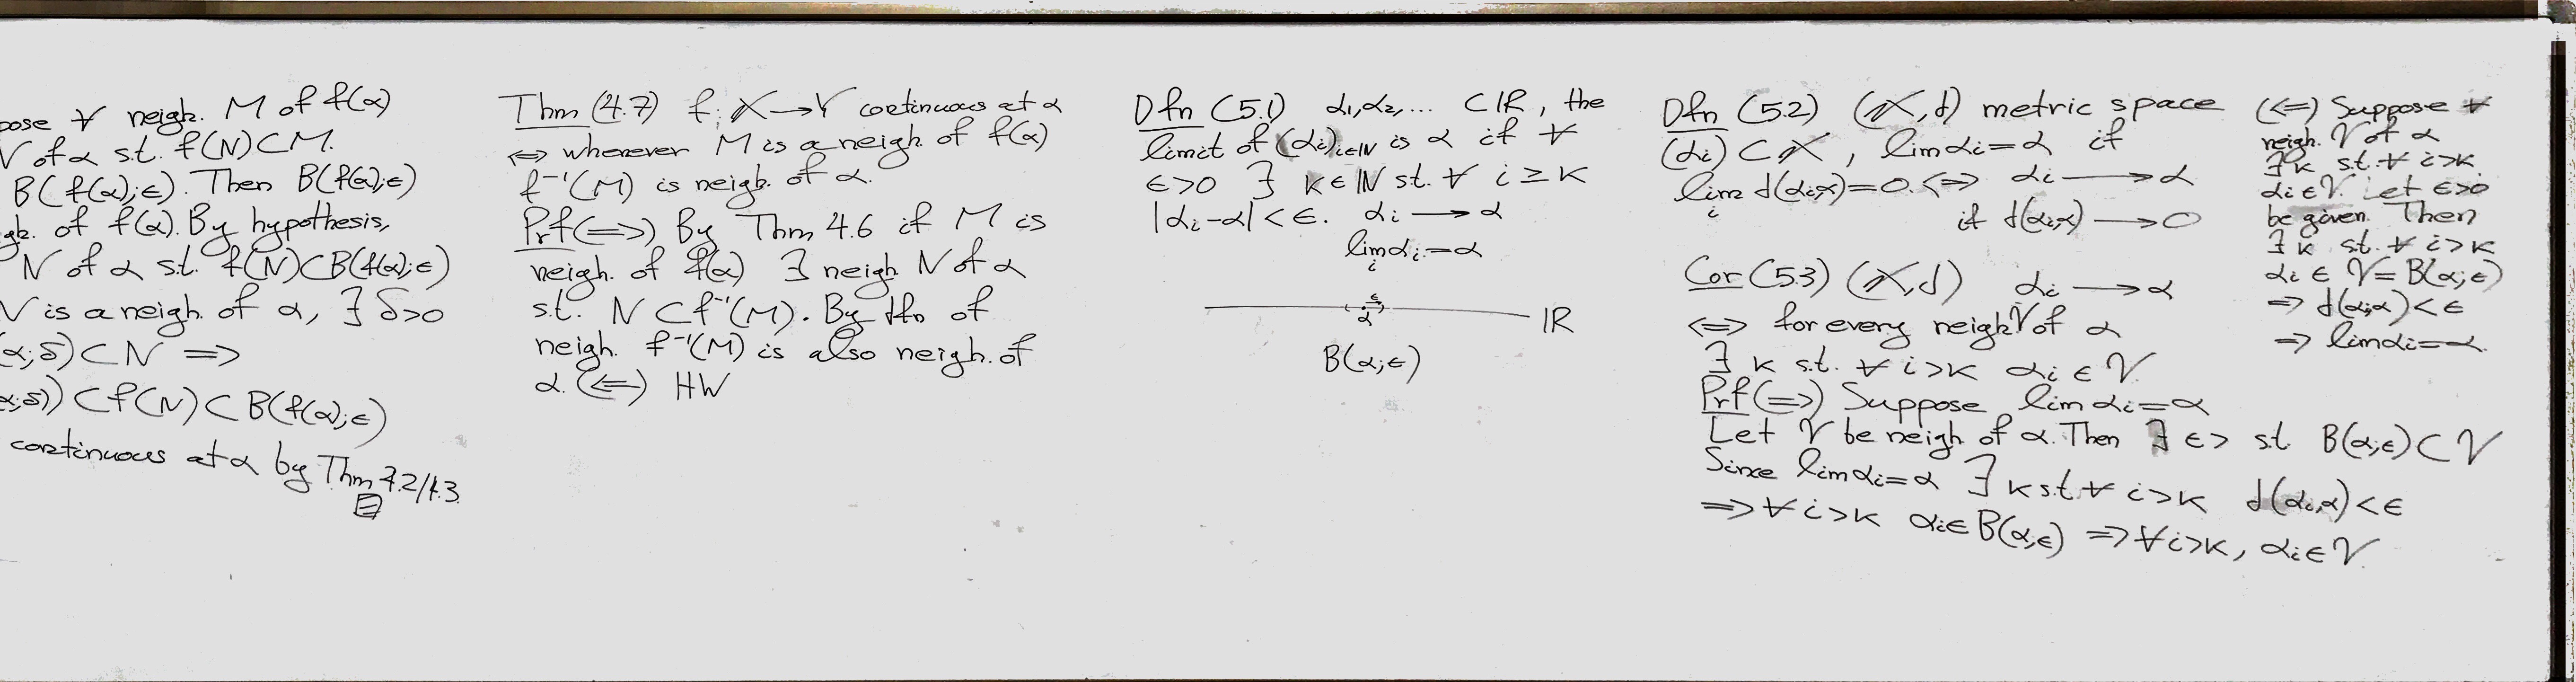 pose ∀ neigh. M of f(α)
V of α s.t. f(N)⊂M.
B(f(α);ϵ). Then B(f(α);ϵ)
gh. of f(α). By hypothesis,
N of α s.t. f(N)⊂B(f(α);ϵ)
V is a neigh. of α, ∃ δ>0
(α;δ)⊂N ⟹
α;δ))⊂f(N)⊂B(f(α);ϵ)
continuous at α by Thm 4.2/4.3
Thm (4.7) f: X→Y continuous at α
⟺ whenever M is a neigh. of f(α)
f⁻¹(M) is neigh. of α.
Prf (⟹) By Thm 4.6 if M is
neigh. of f(α) ∃ neigh N of α
s.t. N⊂f⁻¹(M). By dfn of
neigh. f⁻¹(M) is also neigh. of
α. (⟸) HW
Dfn (5.1) α₁,α₂,... ⊂ℝ, the
limit of (αᵢ)ᵢ∈ℕ is α if ∀
ϵ>0 ∃ k∈ℕ st. ∀ i≥k
|αᵢ-α|<ϵ. αᵢ⟶α
limᵢ αᵢ=α
ϵ
α
ℝ
B(α;ϵ)
Dfn (5.2) (X,d) metric space
(αᵢ)⊂X, lim αᵢ=α if
limᵢ d(αᵢ,α)=0. ⟺ αᵢ⟶α
if d(αᵢ,α)⟶0
Cor (5.3) (X,d) αᵢ⟶α
⟺ for every neigh V of α
∃ k s.t. ∀ i>k αᵢ∈V.
Prf (⟹) Suppose lim αᵢ=α
Let V be neigh of α. Then ∃ ϵ> st B(α;ϵ)⊂V
Since lim αᵢ=α ∃ k s.t ∀ i>k d(αᵢ,α)<ϵ
⟹∀ i>k αᵢ∈B(α;ϵ) ⟹∀i>k, αᵢ∈V
(⟸) Suppose ∀
neigh. V of α
∃ k s.t. ∀ i>k.
αᵢ∈V. Let ϵ>0
be given. Then
∃ k s.t. ∀ i>k
αᵢ∈V=B(α;ϵ)
⟹ d(αᵢ,α)<ϵ
⟹ lim αᵢ=α.